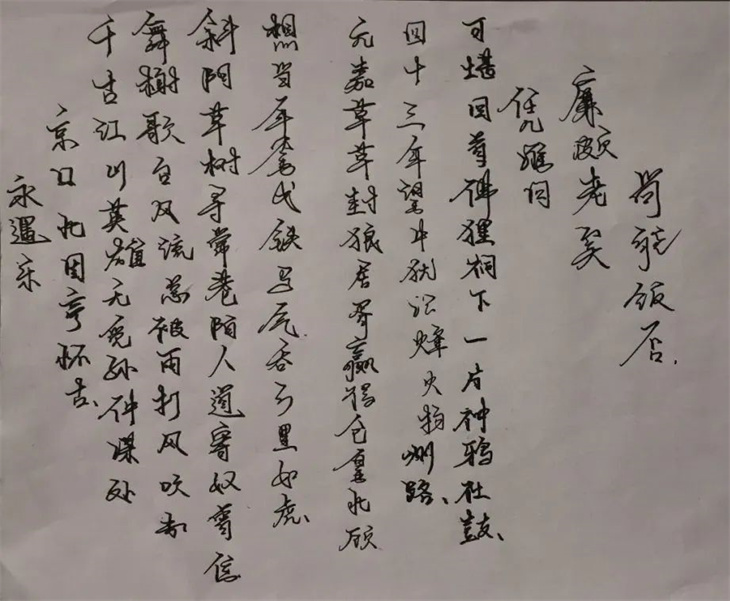 永遇乐
京口北固亭怀古、
千古江山英雄无觅孙仲谋处
舞榭歌台风流总被雨打风吹去
斜阳草树寻常巷陌人道寄奴曾住
想当年金戈铁马气吞万里如虎、
元嘉草草封狼居胥赢得仓皇北顾
四十三年望中犹记烽火扬州路、
可堪回首佛狸祠下一片神鸦社鼓、
凭谁问
廉颇老矣
尚能饭否、